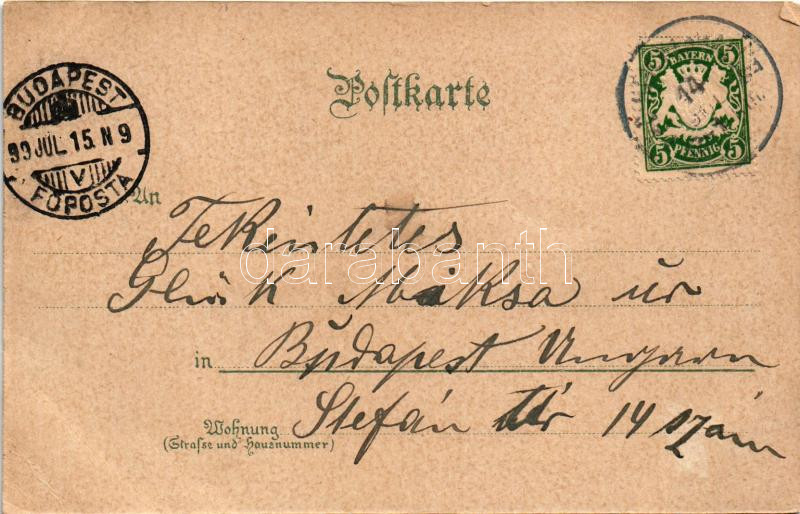 Postkarte
BUDAPEST
99 JUL. 15. N 9
V
FŐPOSTA
5 BAYERN 5
5 PFENNIG 5
14
An
Tekintetes
Glück Máksa úr
in Budapest Ungarn
Wohnung Stefán tér 14 szám
(Strasse und Hausnummer)
darabanth